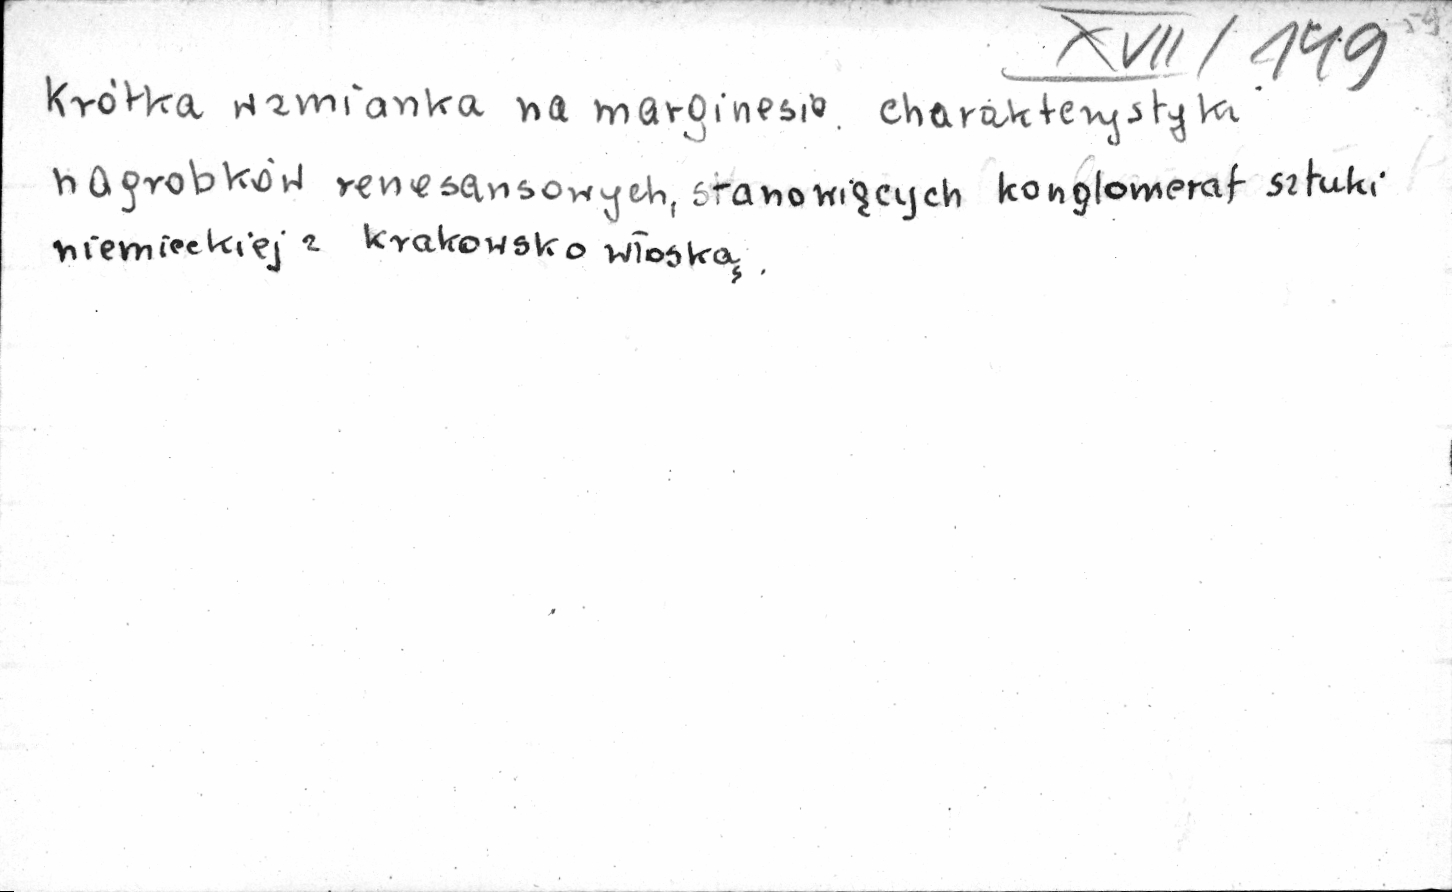 XVII / 149
Krótka wzmianka na marginesie charakterystyki
nagrobków renesansowych, stanowiących konglomerat sztuki
niemieckiej z krakowsko włoską.